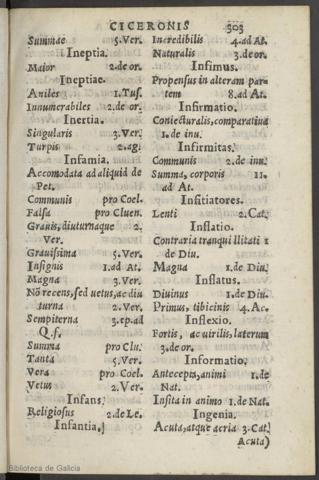 CICERONIS 303
Summae 5.Ver.
Ineptia.
Maior 2.de or.
Ineptiae.
Aniles 1.Tuſ.
Innumerabiles 2.de or.
Inertia.
Singularis 3.Ver.
Turpis 2.ag.
Infamia.
Accomodata ad aliquid de
Pet.
Communis pro Coel.
Falſa pro Cluen.
Grauis, diuturnaque 2.
Ver.
Grauiſsima 5.Ver.
Inſignis 1.ad At.
Magna 3.Ver.
Nō recens, ſed vetus, ac diu
turna 2.Ver.
Sempiterna 3.ep.ad
Q.f.
Summa pro Clu.
Tanta 5.Ver.
Vera pro Coel.
Vetus 2.Ver.
Infans.
Religioſus 2.de Le.
Infantia,
Incredibilis 4.ad At.
Naturalis 3.de or.
Infimus.
Propenſus in alteram par-
tem 8.ad At.
Infirmatio.
Coniecturalis, comparatiua
1.de inu.
Infirmitas.
Communis 2.de inu.
Summa, corporis 11.
ad At.
Inſitiatores.
Lenti 2.Cat.
Inflatio.
Contraria tranquillitati 1
de Diu.
Magna 1.de Diu.
Inflatus.
Diuinus 1.de Diu.
Primus, tibicinis 4.Ac.
Inflexio.
Fortis, ac virilis, laterum
3.de or.
Informatio.
Antecepta, animi 1.de
Nat.
Inſita in animo 1.de Nat.
Ingenia.
Acuta, atque acria 3.Cat.
Acuta)
Biblioteca de Galicia